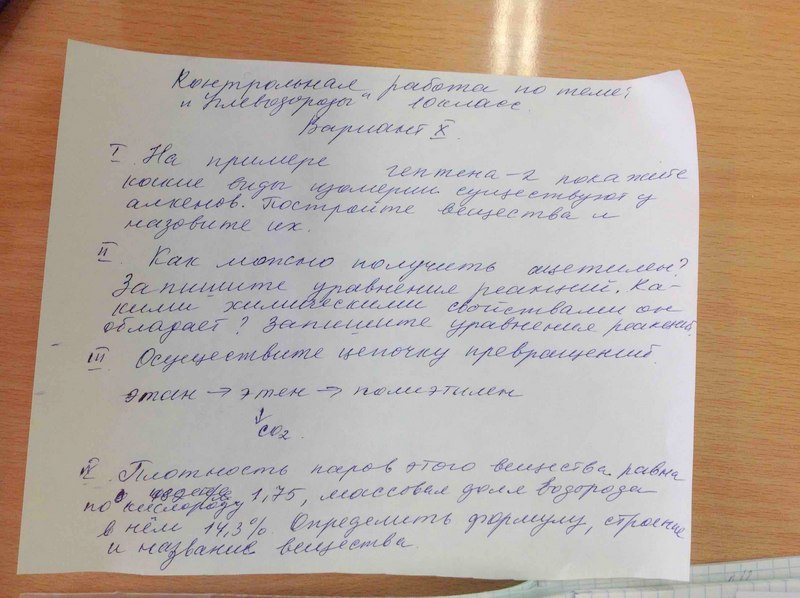 Контрольная работа по теме:
"Углеводороды" 10 класс.
Вариант X.
I. На примере гептена-2 покажите
какие виды изомерии существуют у
алкенов. Постройте вещества и
назовите их.
II. Как можно получить ацетилен?
Запишите уравнения реакций. Ка-
кими химическими свойствами он
обладает? Запишите уравнения реакций.
III Осуществите цепочку превращений.
этан → этен → полиэтилен
↓
CO2.
IV Плотность паров этого вещества равна
по кислороду 1,75, массовая доля водорода
в нём 14,3%. Определить формулу, строение
и название вещества.